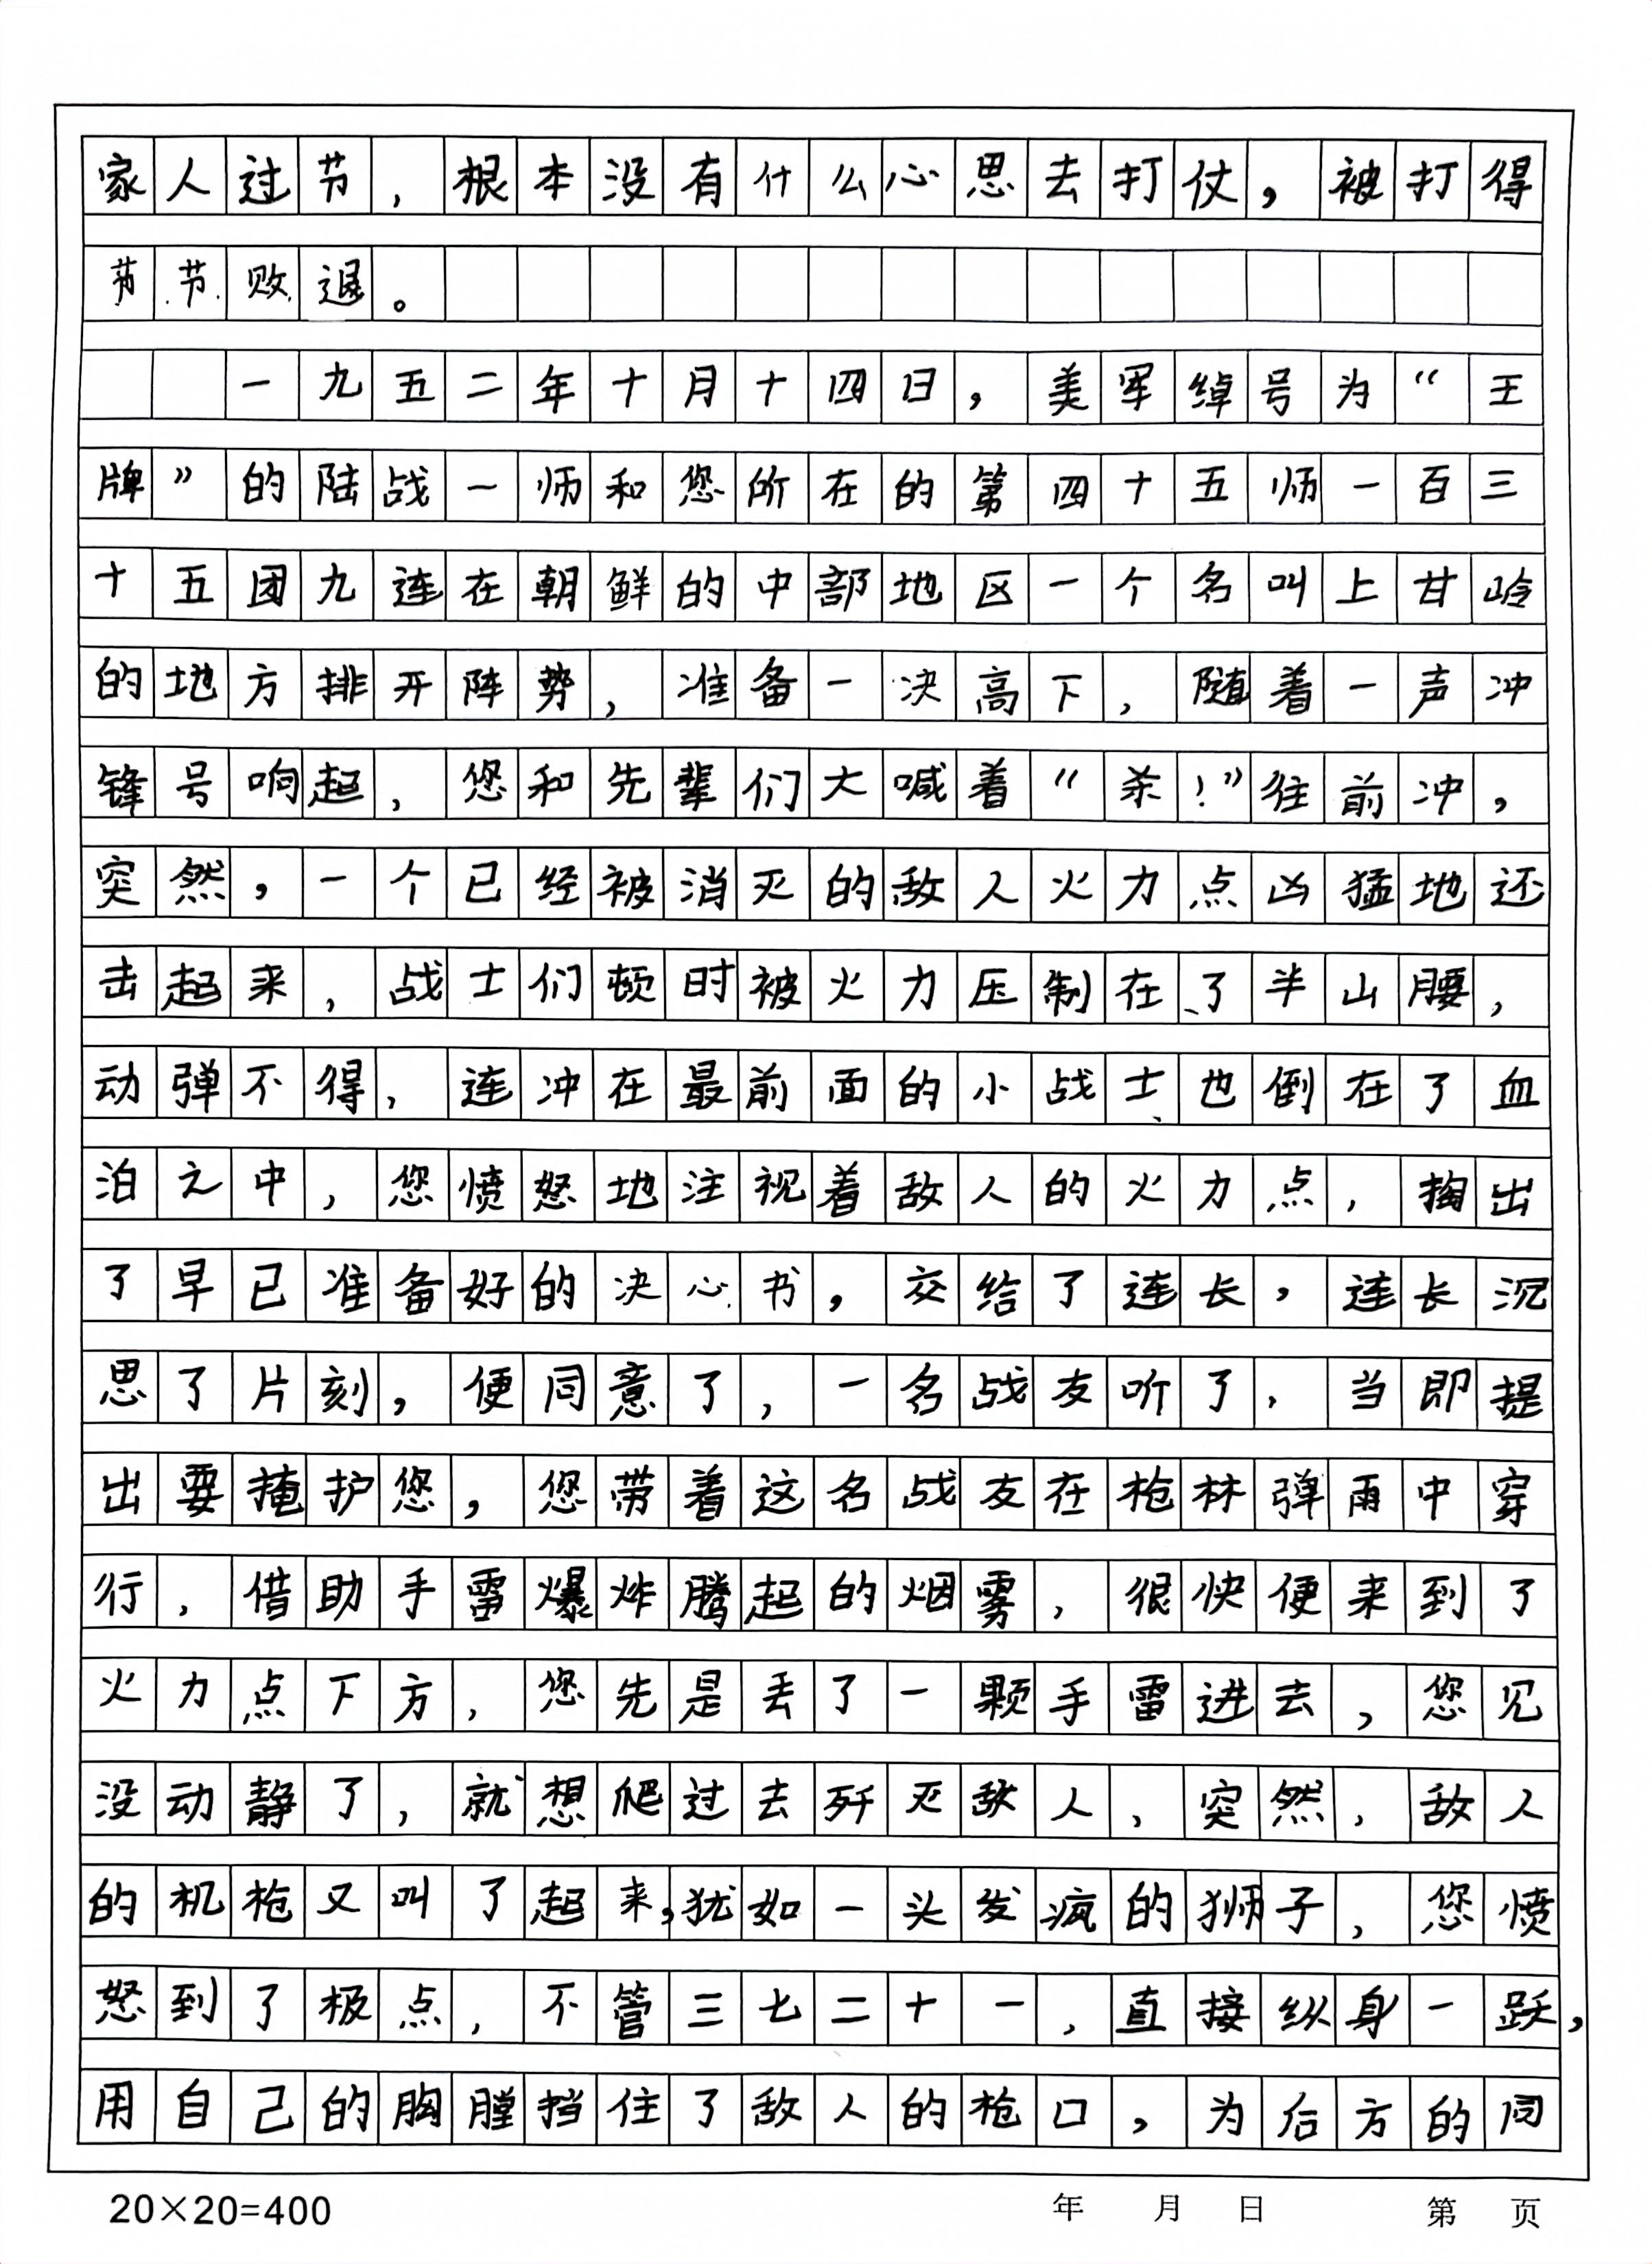 家人过节，根本没有什么心思去打仗，被打得
节节败退。
一九五二年十月十四日，美军绰号为“王
牌”的陆战一师和您所在的第四十五师一百三
十五团九连在朝鲜的中部地区一个名叫上甘岭
的地方排开阵势，准备一决高下，随着一声冲
锋号响起，您和先辈们大喊着“杀！”往前冲，
突然，一个已经被消灭的敌人火力点凶猛地还
击起来，战士们顿时被火力压制在了半山腰，
动弹不得，连冲在最前面的小战士也倒在了血
泊之中，您愤怒地注视着敌人的火力点，掏出
了早已准备好的决心书，交给了连长，连长沉
思了片刻，便同意了，一名战友听了，当即提
出要掩护您，您带着这名战友在枪林弹雨中穿
行，借助手雷爆炸腾起的烟雾，很快便来到了
火力点下方，您先是丢了一颗手雷进去，您见
没动静了，就想爬过去歼灭敌人，突然，敌人
的机枪又叫了起来，犹如一头发疯的狮子，您愤
怒到了极点，不管三七二十一，直接纵身一跃，
用自己的胸膛挡住了敌人的枪口，为后方的同
20×20=400 年 月 日 第 页